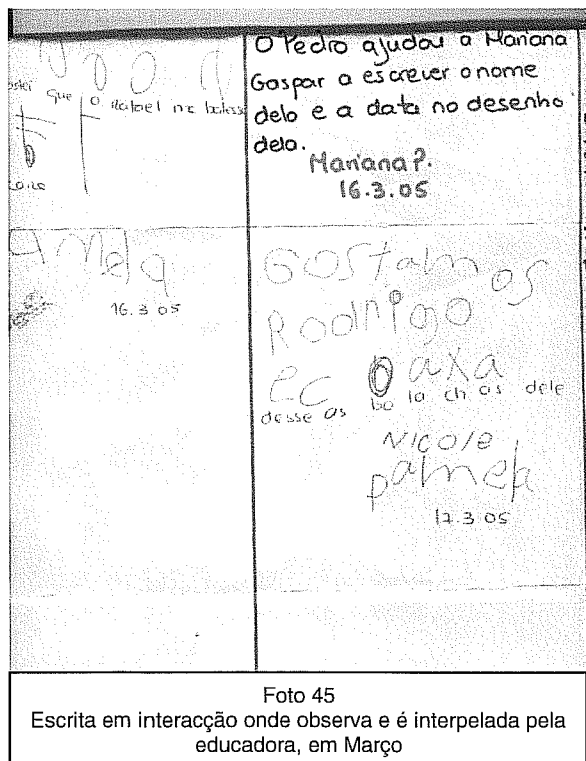 que o Rafael
16.3.05
O Pedro ajudou a Mariana
Gaspar a escrever o nome
delo e a data no desenho
dela.
Mariana P.
16.3.05
GOSTAMOS
RODRIGO
EC O AXA
desse as bo la ch as dele
NICOLE
PAMELA
17.3.05
Foto 45
Escrita em interacção onde observa e é interpelada pela
educadora, em Março